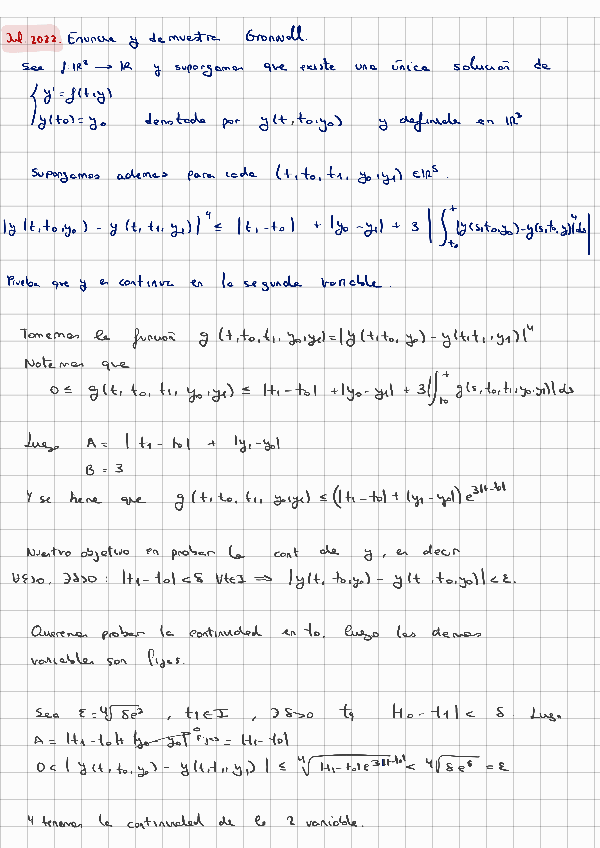 Jul 2022. Enuncia y demuestra Gronwall.
Sea f: ℝ² → ℝ y supongamos que existe una única solución de
{ y' = f(t,y)
y(t0) = y0 denotada por y(t, t0, y0) y definida en ℝ³
Supongamos ademas para cada (t, t0, t1, y0, y1) ∈ ℝ⁵.
|y(t, t0, y0) - y(t, t1, y1)|⁴ ≤ |t1 - t0| + |y0 - y1| + 3 | ∫_{t0}^{t} |y(s, t0, y0) - y(s, t0, y)|⁴ ds |
Prueba que y es continua en la segunda variable.
Tomemos la función g(t, t0, t1, y0, y1) = |y(t, t0, y0) - y(t, t1, y1)|⁴
Notemos que
0 ≤ g(t, t0, t1, y0, y1) ≤ |t1 - t0| + |y0 - y1| + 3 | ∫_{t0}^{t} g(s, t0, t1, y0, y1) | ds
Luego A = |t1 - t0| + |y1 - y0|
B = 3
Y se tiene que g(t, t0, t1, y0, y1) ≤ (|t1 - t0| + |y1 - y0|) e^{3|t - t0|}
Nuestro objetivo es probar la cont de y, es decir
∀ε>0, ∃δ>0 : |t1 - t0| < δ ∀t∈I ⟹ |y(t, t0, y0) - y(t, t0, y0)| < ε.
Queremos probar la continuidad en t0, luego las demas
variables son fijas.
Sea ε = ⁴√δe³ , t1 ∈ I , ∃ δ>0 tq |t0 - t1| < δ. Luego
A = |t1 - t0| + |y0 - y0| fijas = |t1 - t0|
0 < | y(t, t0, y0) - y(t, t1, y1) | ≤ ⁴√|t1 - t0| e^{3|t - t0|} < ⁴√δe³ = ε
Y tenemos la continuidad de la 2 variable.